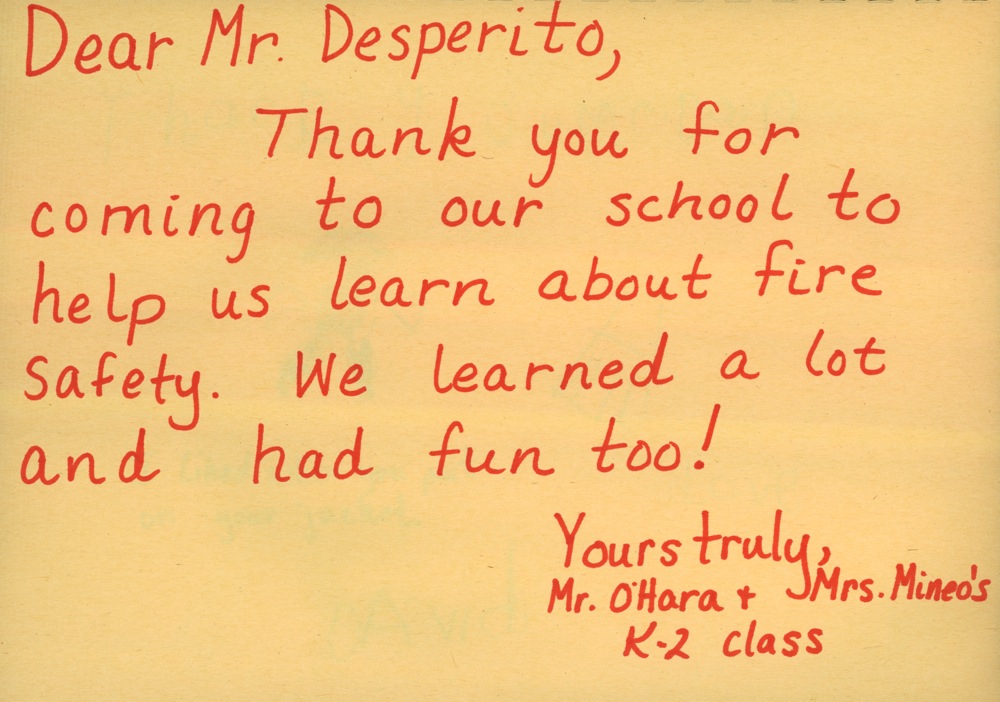 Dear Mr. Desperito,
Thank you for
coming to our school to
help us learn about fire
safety. We learned a lot
and had fun too!
Yours truly,
Mr. O'Hara + Mrs. Mineo's
K-2 class